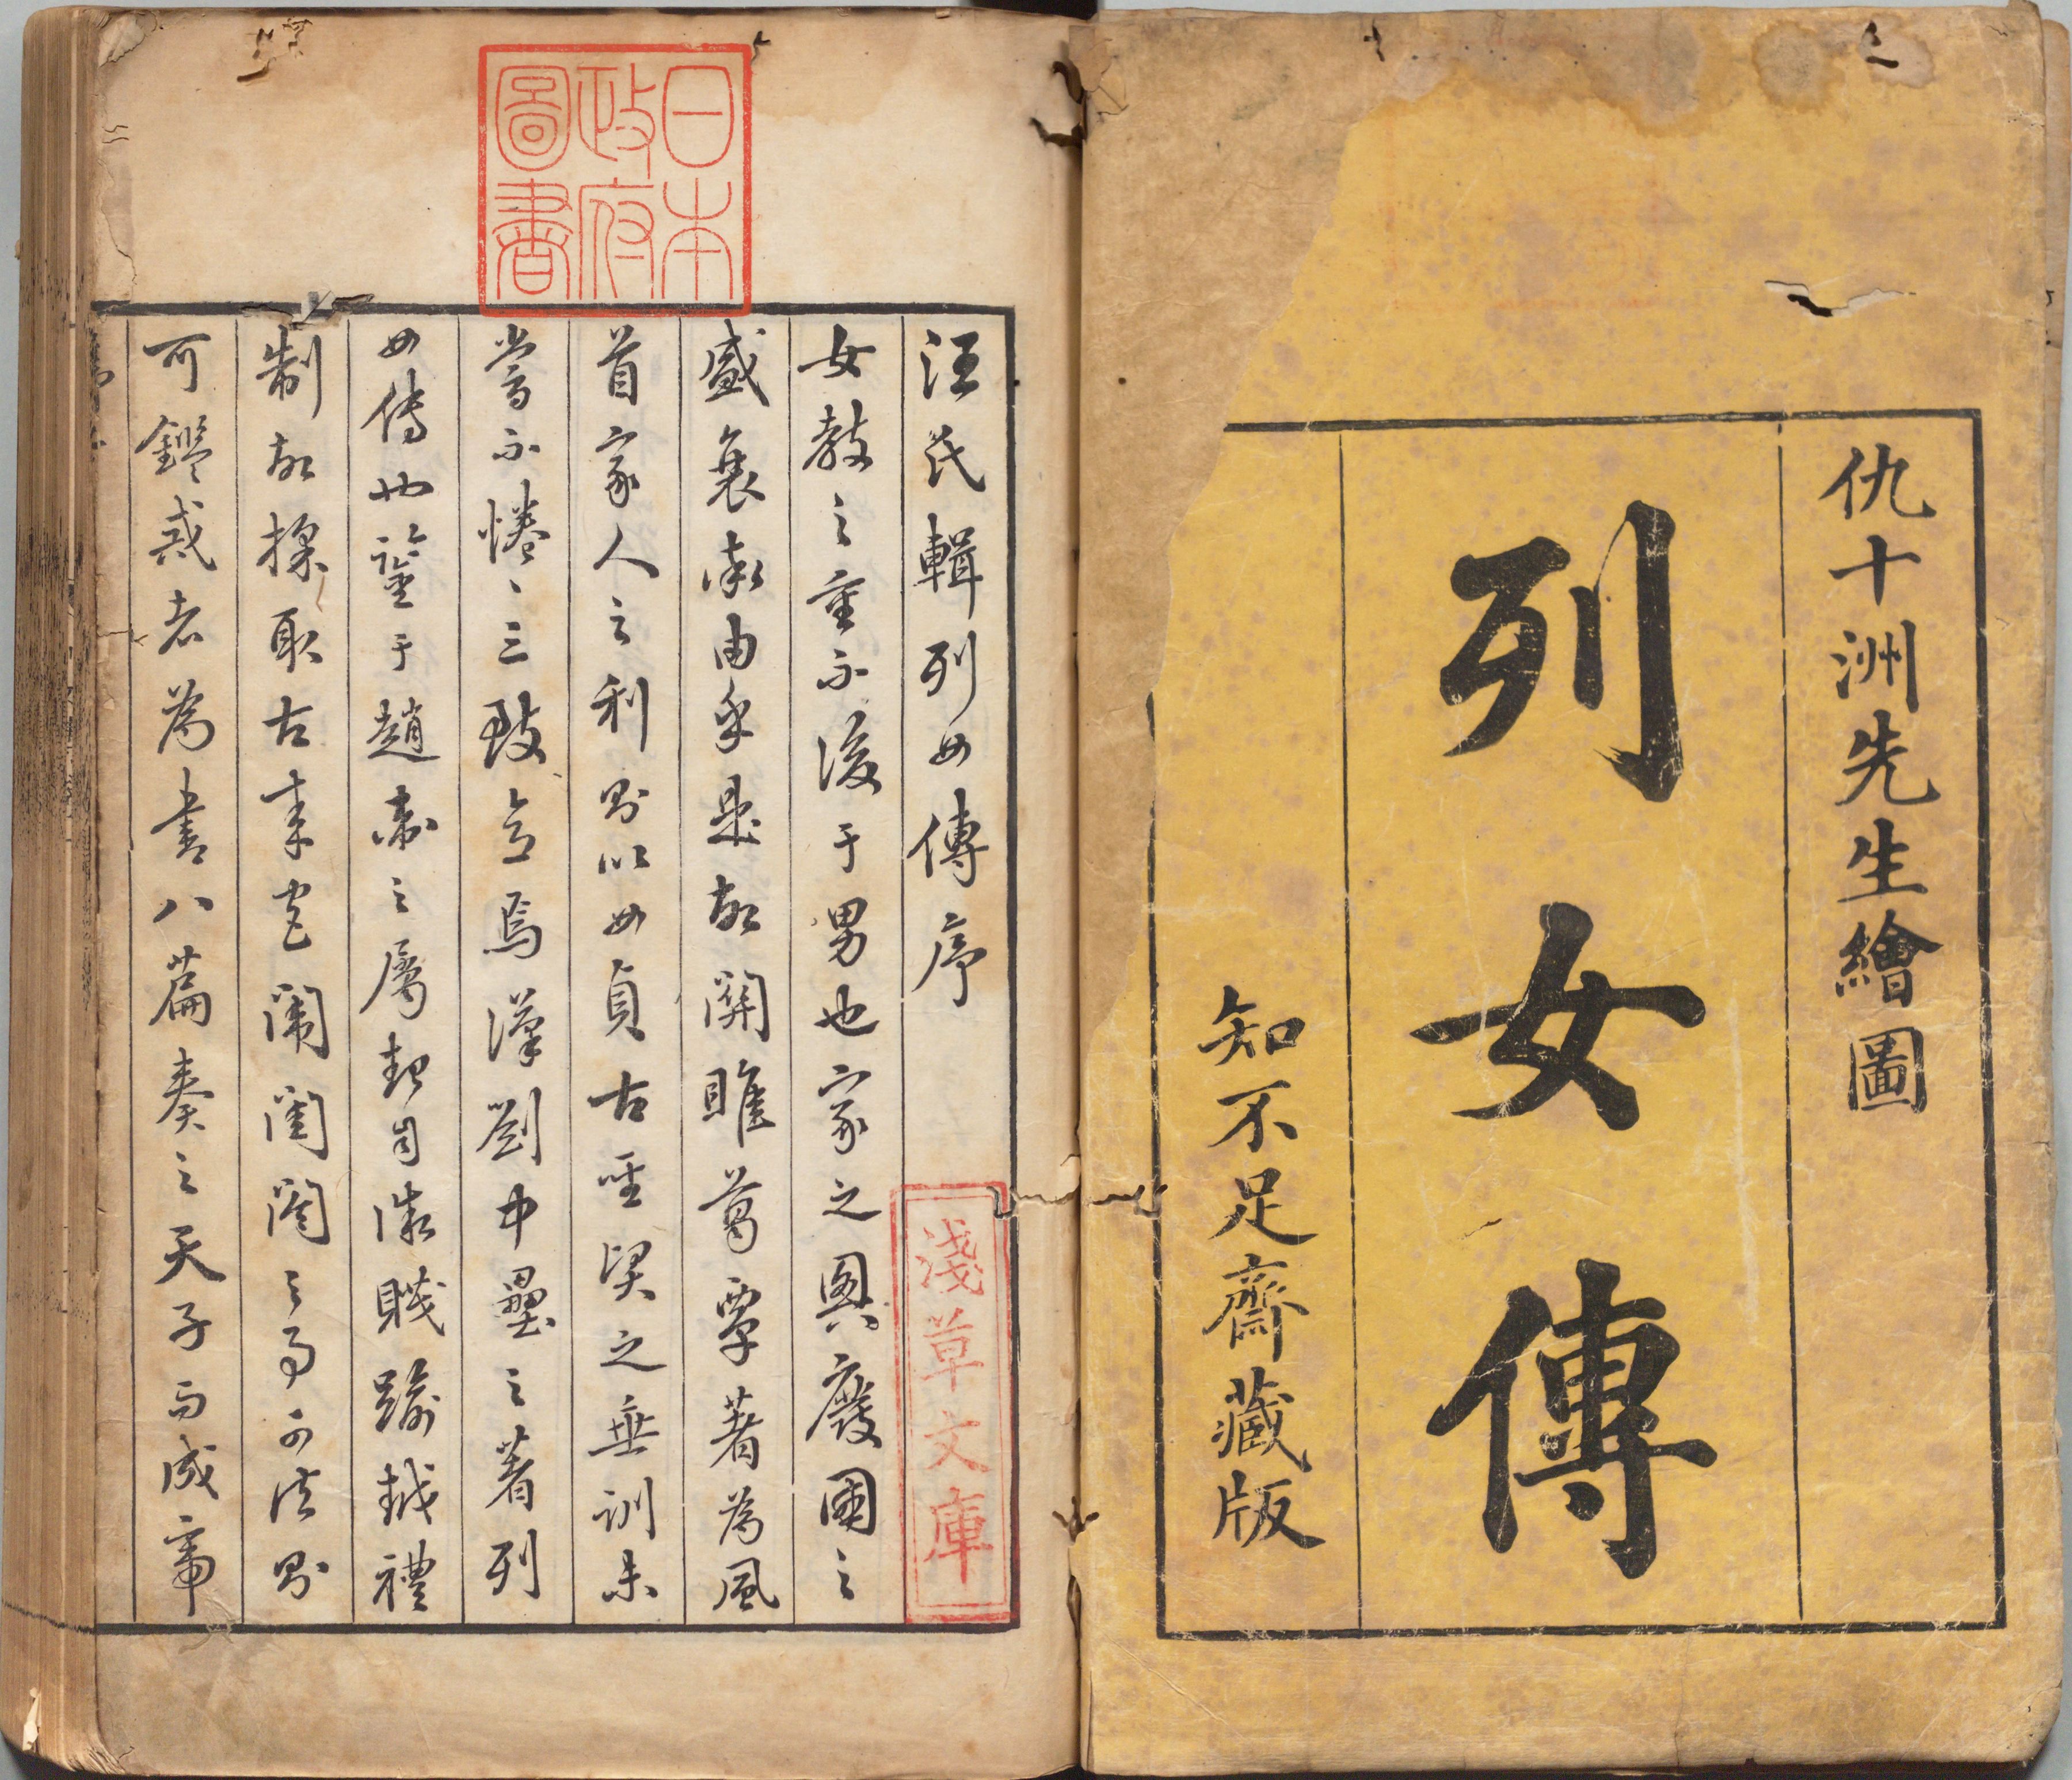 仇十洲先生繪圖
列女傳
知不足齋藏版
日本
政府
圖書
汪氏輯列女傳序
淺草文庫
女教之重不後于男也家之興廢國之
盛衰率由乎是故關雎葛覃著為風
首家人之利則以女貞古聖賢之垂訓未
嘗不惓惓三致意焉漢劉中壘之著列
女傳也鑒于趙衛之屬起自微賤踰越禮
制故採取古來宮闈閨閣之事可法則
可鑑戒者為書八篇奏之天子而成帝